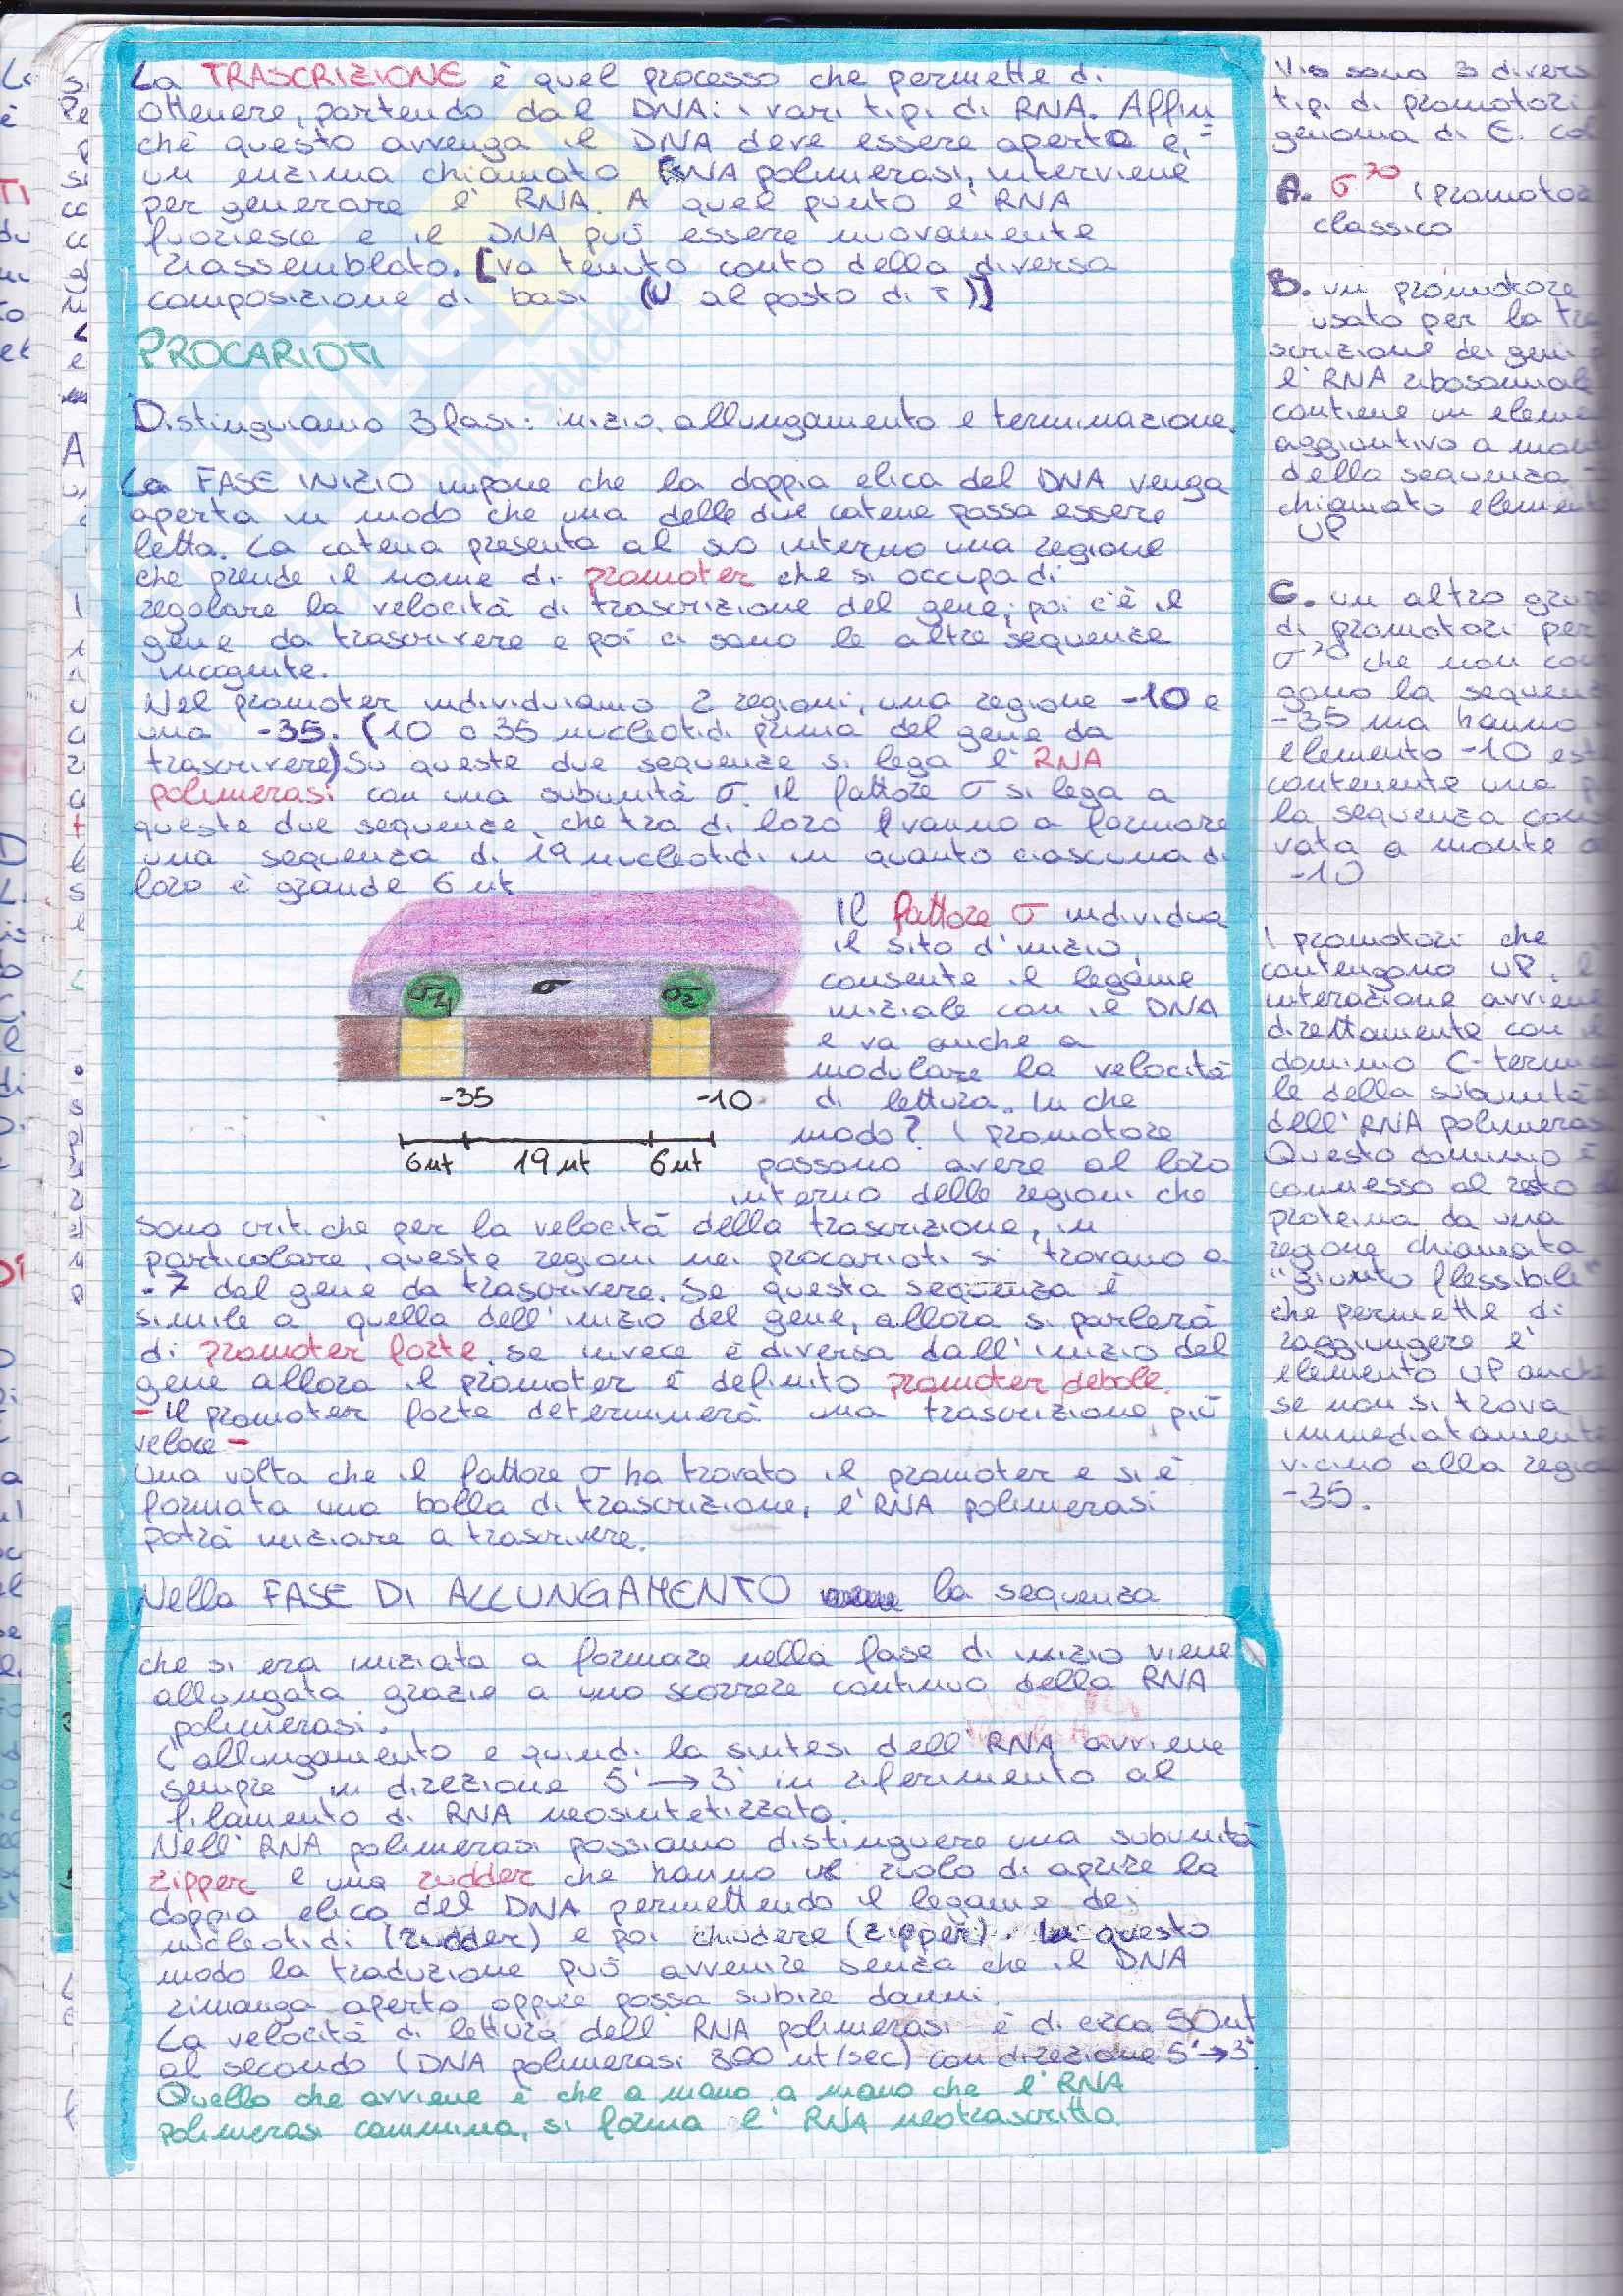 La TRASCRIZIONE è quel processo che permette di
ottenere, partendo dal DNA: i vari tipi di RNA. Affin
chè questo avvenga il DNA deve essere aperto e,
un enzima chiamato RNA polimerasi, interviene
per generare l'RNA. A quel punto l'RNA
fuoriesce e il DNA può essere nuovamente
riassemblato. [va tenuto conto della diversa
composizione di basi (U al posto di T)]
PROCARIOTI
Distinguiamo 3 fasi: inizio, allungamento e terminazione.
La FASE INIZIO impone che la doppia elica del DNA venga
aperta in modo che una delle due catene possa essere
letta. La catena presenta al suo interno una regione
che prende il nome di promoter che si occupa di
regolare la velocità di trascrizione del gene; poi c'è il
gene da trascrivere e poi ci sono le altre sequenze
incognite.
Nel promoter individuiamo 2 regioni, una regione -10 e
una -35. (10 o 35 nucleotidi prima del gene da
trascrivere) Su queste due sequenze si lega l'RNA
polimerasi con una subunità σ. il fattore σ si lega a
queste due sequenze, che tra di loro vanno a formare
una sequenza di 19 nucleotidi in quanto ciascuna di
loro è grande 6 nt
σ4 σ σ2
-35 -10
6nt 19nt 6nt
Il fattore σ individua
il sito d'inizio,
consente il legame
iniziale con il DNA
e va anche a
modulare la velocità
di lettura. In che
modo? I promotore
possono avere al loro
interno delle regioni che
sono critiche per la velocità della trascrizione, in
particolare, queste regioni nei procarioti si trovano a
-7 dal gene da trascrivere. Se questa sequenza è
simile a quella dell'inizio del gene, allora si parlerà
di promoter forte, se invece è diversa dall'inizio del
gene allora il promoter è definito promoter debole.
- Il promoter forte determinerà una trascrizione più
veloce -
Una volta che il fattore σ ha trovato il promoter e si è
formata una bolla di trascrizione, l'RNA polimerasi
potrà iniziare a trascrivere.
Nella FASE DI ALLUNGAMENTO la sequenza
che si era iniziata a formare nella fase di inizio viene
allungata grazie a uno scorrere continuo della RNA
polimerasi.
L'allungamento e quindi la sintesi dell'RNA avviene
sempre in direzione 5' → 3' in riferimento al
filamento di RNA neosintetizzato.
Nell'RNA polimerasi possiamo distinguere una subunità
zipper e una rudder che hanno il ruolo di aprire la
doppia elica del DNA permettendo il legame dei
nucleotidi (rudder) e poi chiudere (zipper). In questo
modo la traduzione può avvenire senza che il DNA
rimanga aperto oppure possa subire danni
La velocità di lettura dell'RNA polimerasi è di circa 50 nt
al secondo (DNA polimerasi 800 nt/sec) con direzione 5' → 3'
Quello che avviene è che a mano a mano che l'RNA
polimerasi cammina, si forma l'RNA neotrascritto.
Vi sono 3 divers
tipi di promotori
genoma di E. col
A. σ70 (promotor
classico
B. un promotore
usato per la tra
scrizione dei geni
l'RNA ribosomiale
contiene un eleme
aggiuntivo a mon
della sequenza -
chiamato element
UP
C. un altro grup
di promotori per
σ70 che non con
gono la sequenz
-35 ma hanno
elemento -10 est
contenente una p
la sequenza cons
vata a monte
-10
I promotori che
contengono UP, l'
interazione avviene
direttamente con il
dominio C-termi
le della subunità
dell'RNA polimeras
Questo dominio è
connesso al resto
proteina da una
regione chiamata
"giunto flessibile"
che permette di
raggiungere l'
elemento UP anch
se non si trova
immediatamente
vicino alla regio
-35.